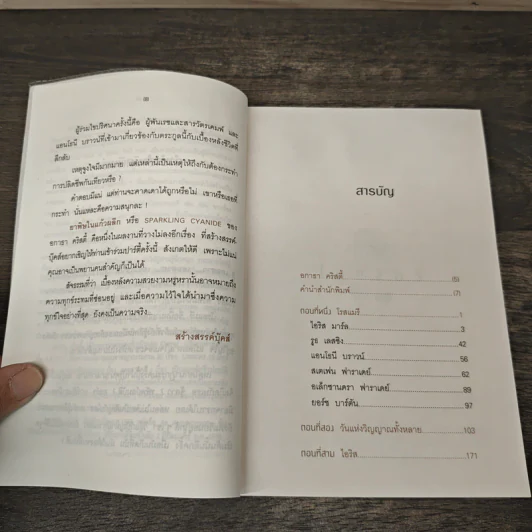 ผู้ร่วมไขปริศนาครั้งนี้คือ ผู้พันเรซและสารวัตรเคมพ์ และ
แอนโธนี บราวน์ที่เข้ามาเกี่ยวข้องกับตระกูลนี้กับเบื้องหลังชีวิตที่
ลึกลับ
เหตุจูงใจมีมากมาย แต่เหล่านี้เป็นเหตุให้ถึงกับต้องกระทำ
การปลิดชีพกันเทียวหรือ ?
คำตอบมีแน่ แต่ท่านจะคาดเดาได้ถูกหรือไม่ เขาหรือเธอที่
กระทำ นั่นแหละคือความสนุกละ !
ยาพิษในแก้วผลึก หรือ SPARKLING CYANIDE ของ
อกาธา คริสตี้ คือหนึ่งในผลงานที่วางไม่ลงอีกเรื่อง ที่สร้างสรรค์-
บุ๊คส์อยากเชิญให้ท่านเข้าร่วมปาร์ตี้ครั้งนี้ สังเกตให้ดี เพราะไม่แน่
คุณอาจเป็นพยานคนสำคัญก็เป็นได้
สัจธรรมที่ว่า เบื้องหลังความสวยงามหรูหรานั้นอาจหมายถึง
ความทุกข์ระทมที่ซ่อนอยู่ และเมื่อความไว้ใจได้นำมาซึ่งความ
ทุกข์ใจอย่างที่สุด ยังคงเป็นความจริง...
สร้างสรรค์บุ๊คส์
สารบัญ
อกาธา คริสตี้ (6)
คำนำสำนักพิมพ์ (7)
ตอนที่หนึ่ง โรสแมรี 1
ไอริส มาร์ล 3
รูธ เลสซิง 42
แอนโธนี บราวน์ 56
สเตเฟน ฟาราเดย์ 62
อเล็กซานดรา ฟาราเดย์ 89
ยอร์ช บาร์ตัน 97
ตอนที่สอง วันแห่งวิญญาณทั้งหลาย 103
ตอนที่สาม ไอริส 171